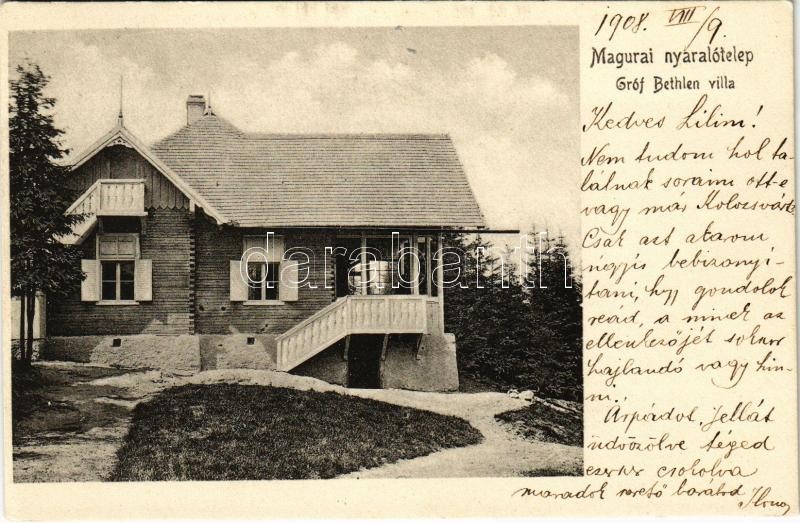 1908. VIII/9.
Magurai nyaralótelep
Gróf Bethlen villa
Kedves Lilim!
Nem tudom hol ta-
lálnak soraim ott-e
vagy már Kolozsvárt.
Csak azt akarom
mégis bebizonyí-
tani, hogy gondolok
read, a minek az
ellenkezőjét sokszor
hajlandó vagy hin-
ni.
Árpádot, Jellát
üdvözölve téged
ezerszer csókolva
maradok szerető barátod
Ilona
darabanth